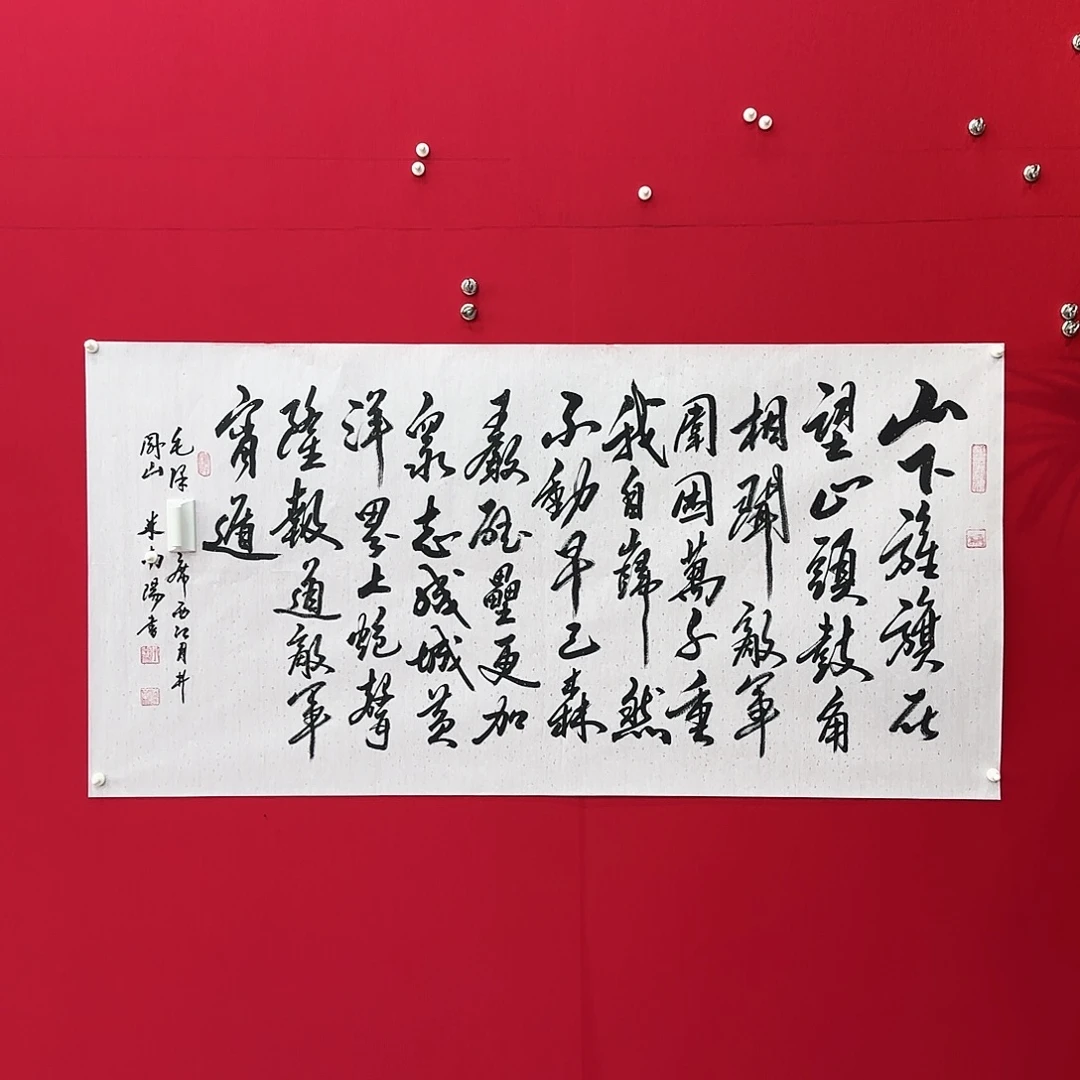 山下旌旗在
望山頭鼓角
相聞敵軍
圍困萬千重
我自巋然
不動早已森
嚴壁壘更加
衆志成城黃
洋界上炮聲
隆報道敵軍
宵遁
毛澤席西江月井
岡山 向陽書